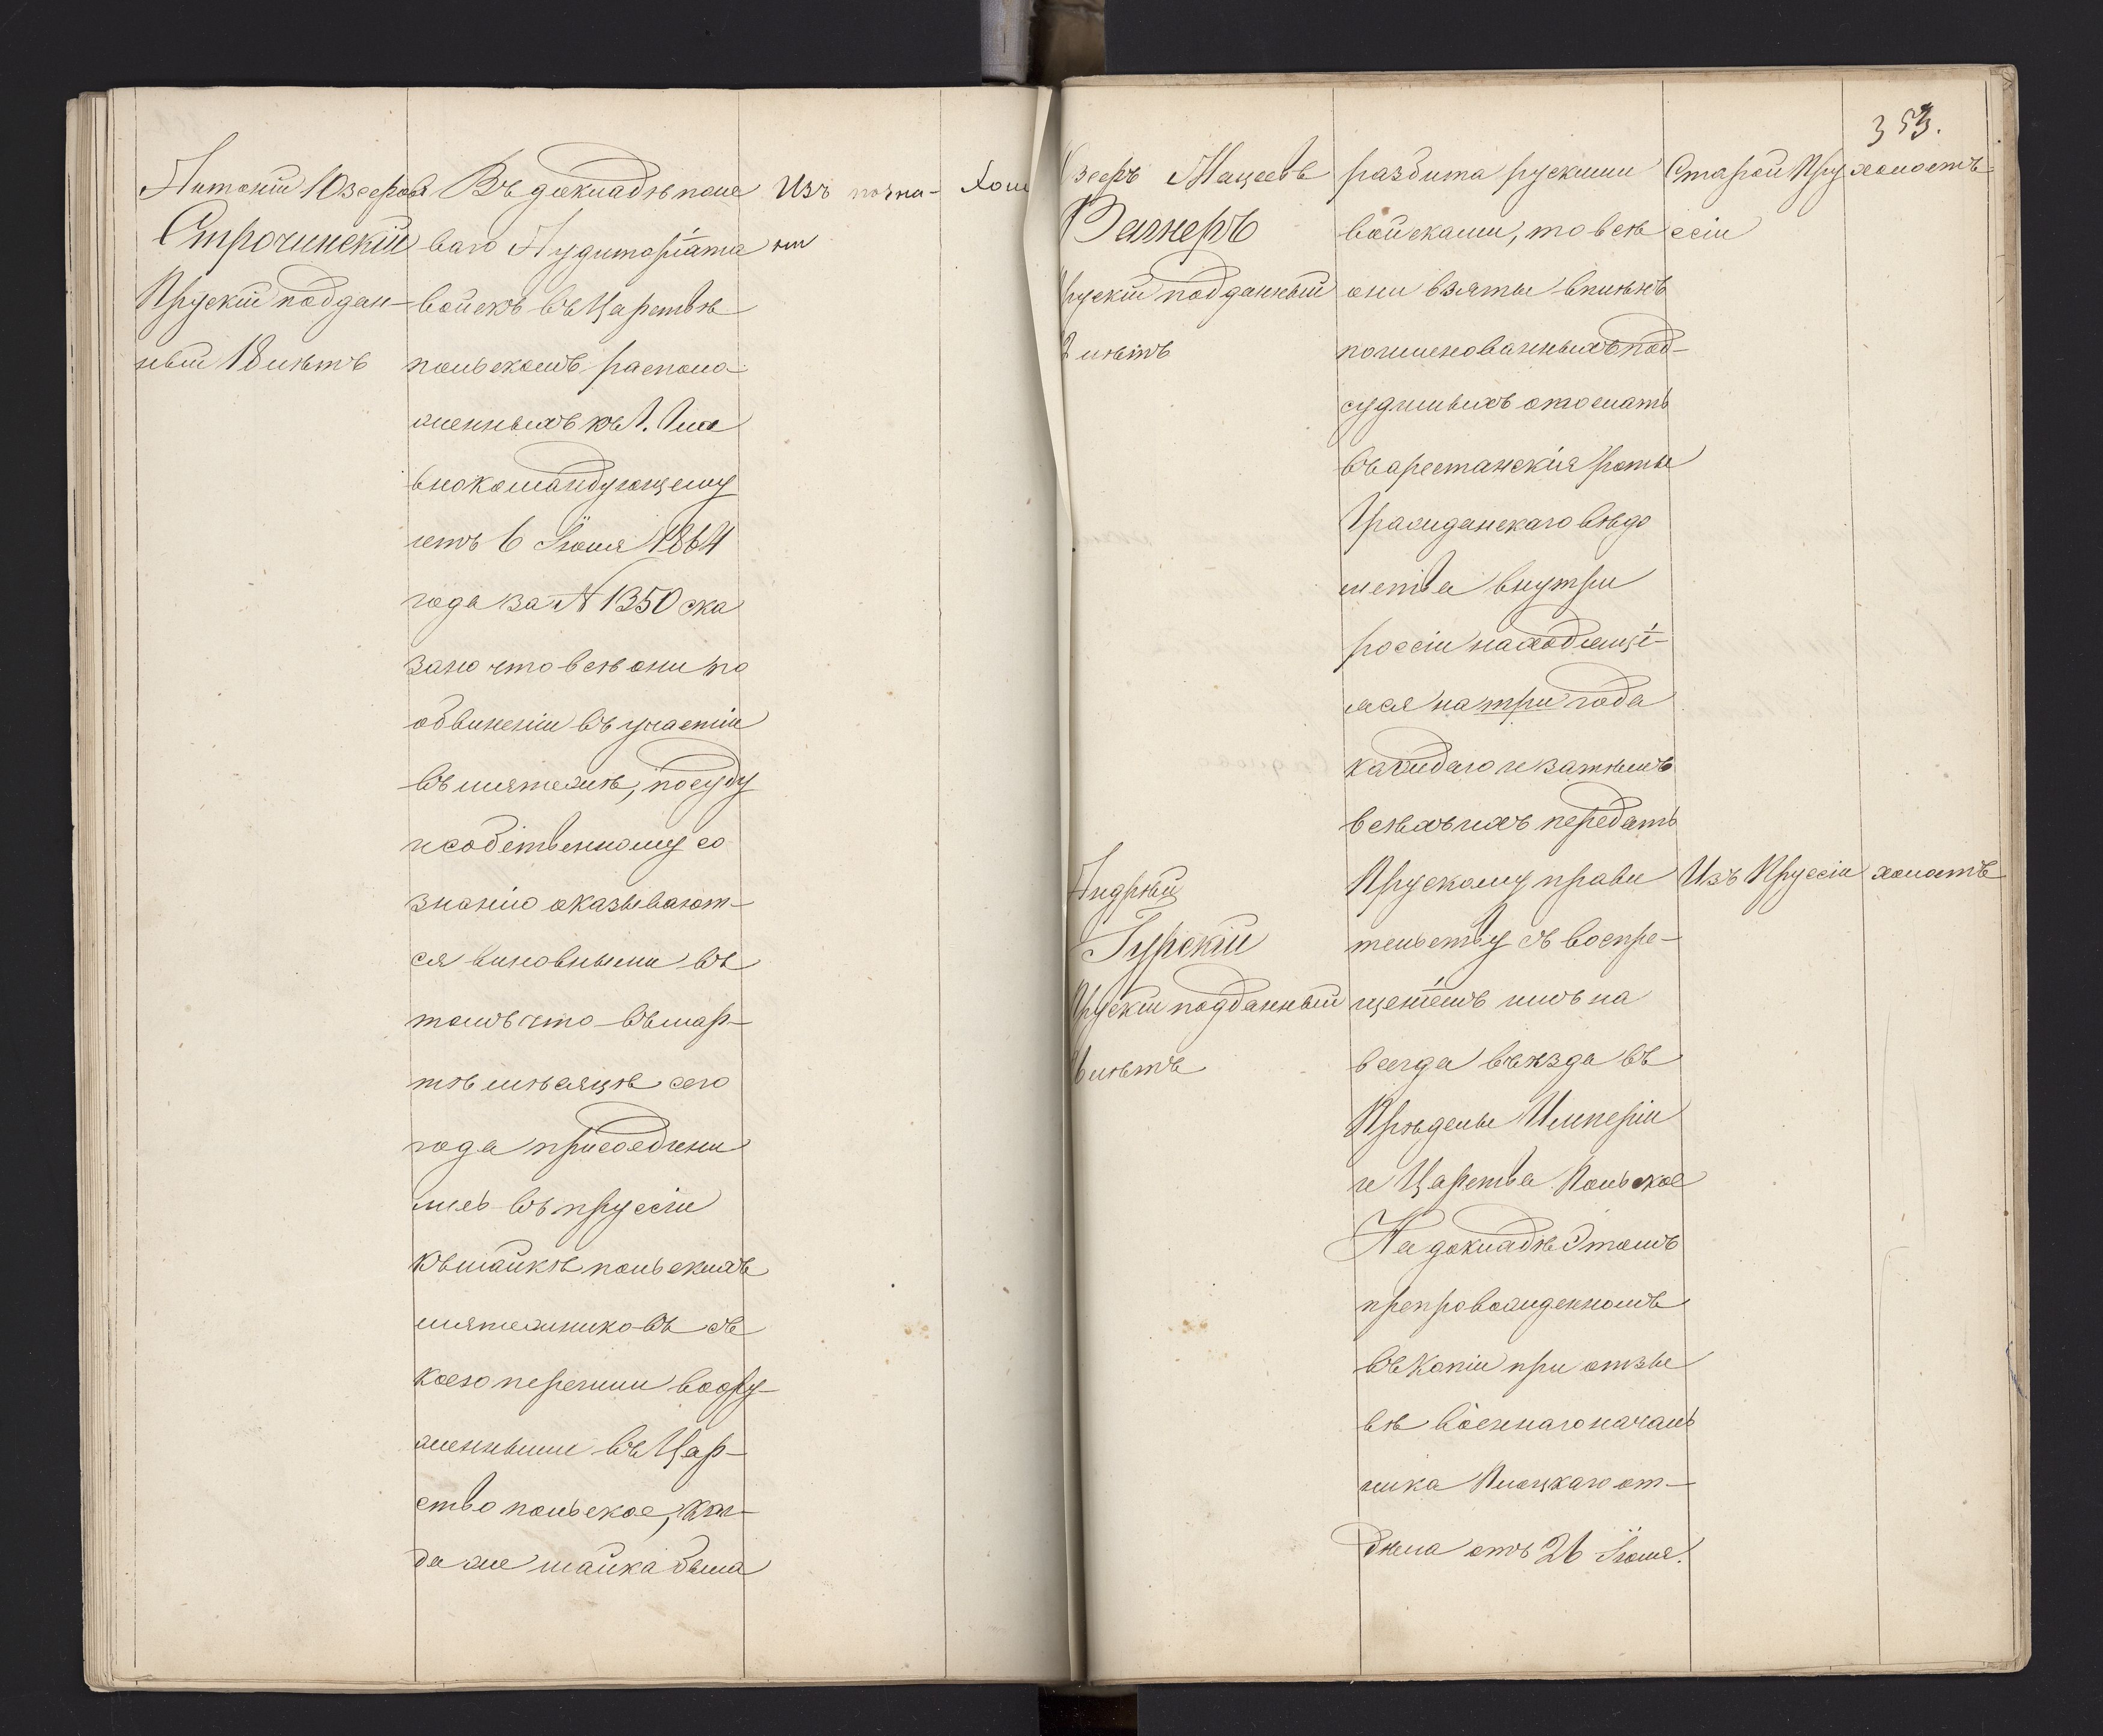 Антоній Юзефовъ
Строчинскій
Прускій поддан-
ный 18 лѣтъ
Въ докладѣ поле
ваго Аудиторіата
войскъ въ Царствѣ
польскомъ располо-
женныхъ къ Г. Гла
внокомандующему
отъ 6 Іюля 1864
года за № 1350 ска
зано что всѣ они по
обвиненіи въ участіи
въ мятежѣ, по суду
и собственному со
знанію оказывают-
ся виновными въ
томъ что въ мар-
тѣ мѣсяцѣ сего
года присоедини
лись въ пруссіи
къ шайкѣ польскихъ
мятежниковъ съ
коею перешли воору-
женными въ Цар-
ство польское, ког-
да же шайка была
Изъ позна-
ни
Хол
353.
Юзефъ Мацеевъ
Вагнеръ
Прускій подданный
лѣтъ
Андрѣй
Гурскій
Прускій подданный
лѣтъ
разбита рускими
войсками, то всѣ
они взяты в плѣнъ
поименованныхъ под-
судимыхъ отослать
въ арестанскія роты
Гражданскаго вѣдо
мства внутри
россіи находящі-
яся на три года
каждаго и затѣмъ
всѣхъ ихъ передать
Прускому прави
тельству съ воспре-
щеніемъ имъ на
всегда въѣзда въ
Прѣделы Имперіи
и Царства Польское
На докладѣ Этомъ
препровожденномъ
въ Копіи при отзы
вѣ военнаго началь
ника Плоцкаго от-
дѣла отъ 26 Іюля.
Старой Пру
ссіи
Изъ Пруссіи
холостъ
холостъ